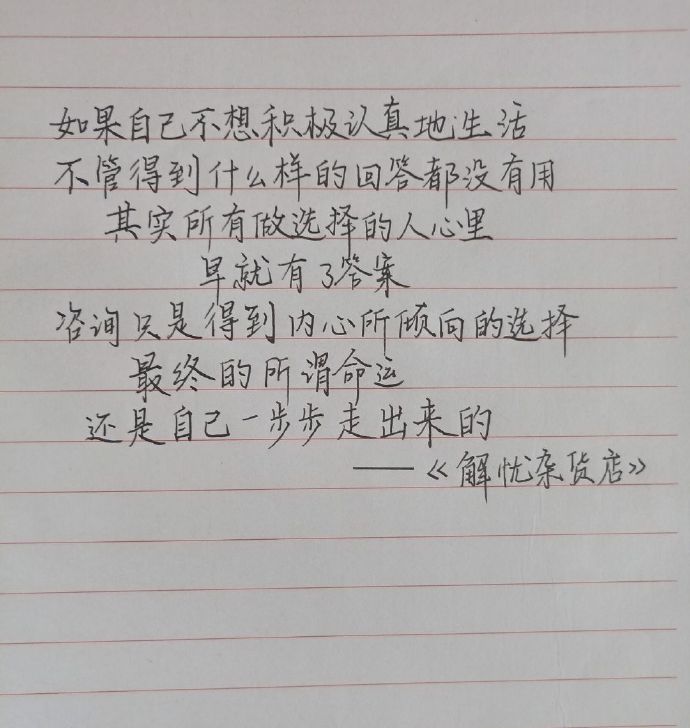 如果自己不想积极认真地生活
不管得到什么样的回答都没有用
其实所有做选择的人心里
早就有了答案
咨询只是得到内心所倾向的选择
最终的所谓命运
还是自己一步步走出来的
——《解忧杂货店》